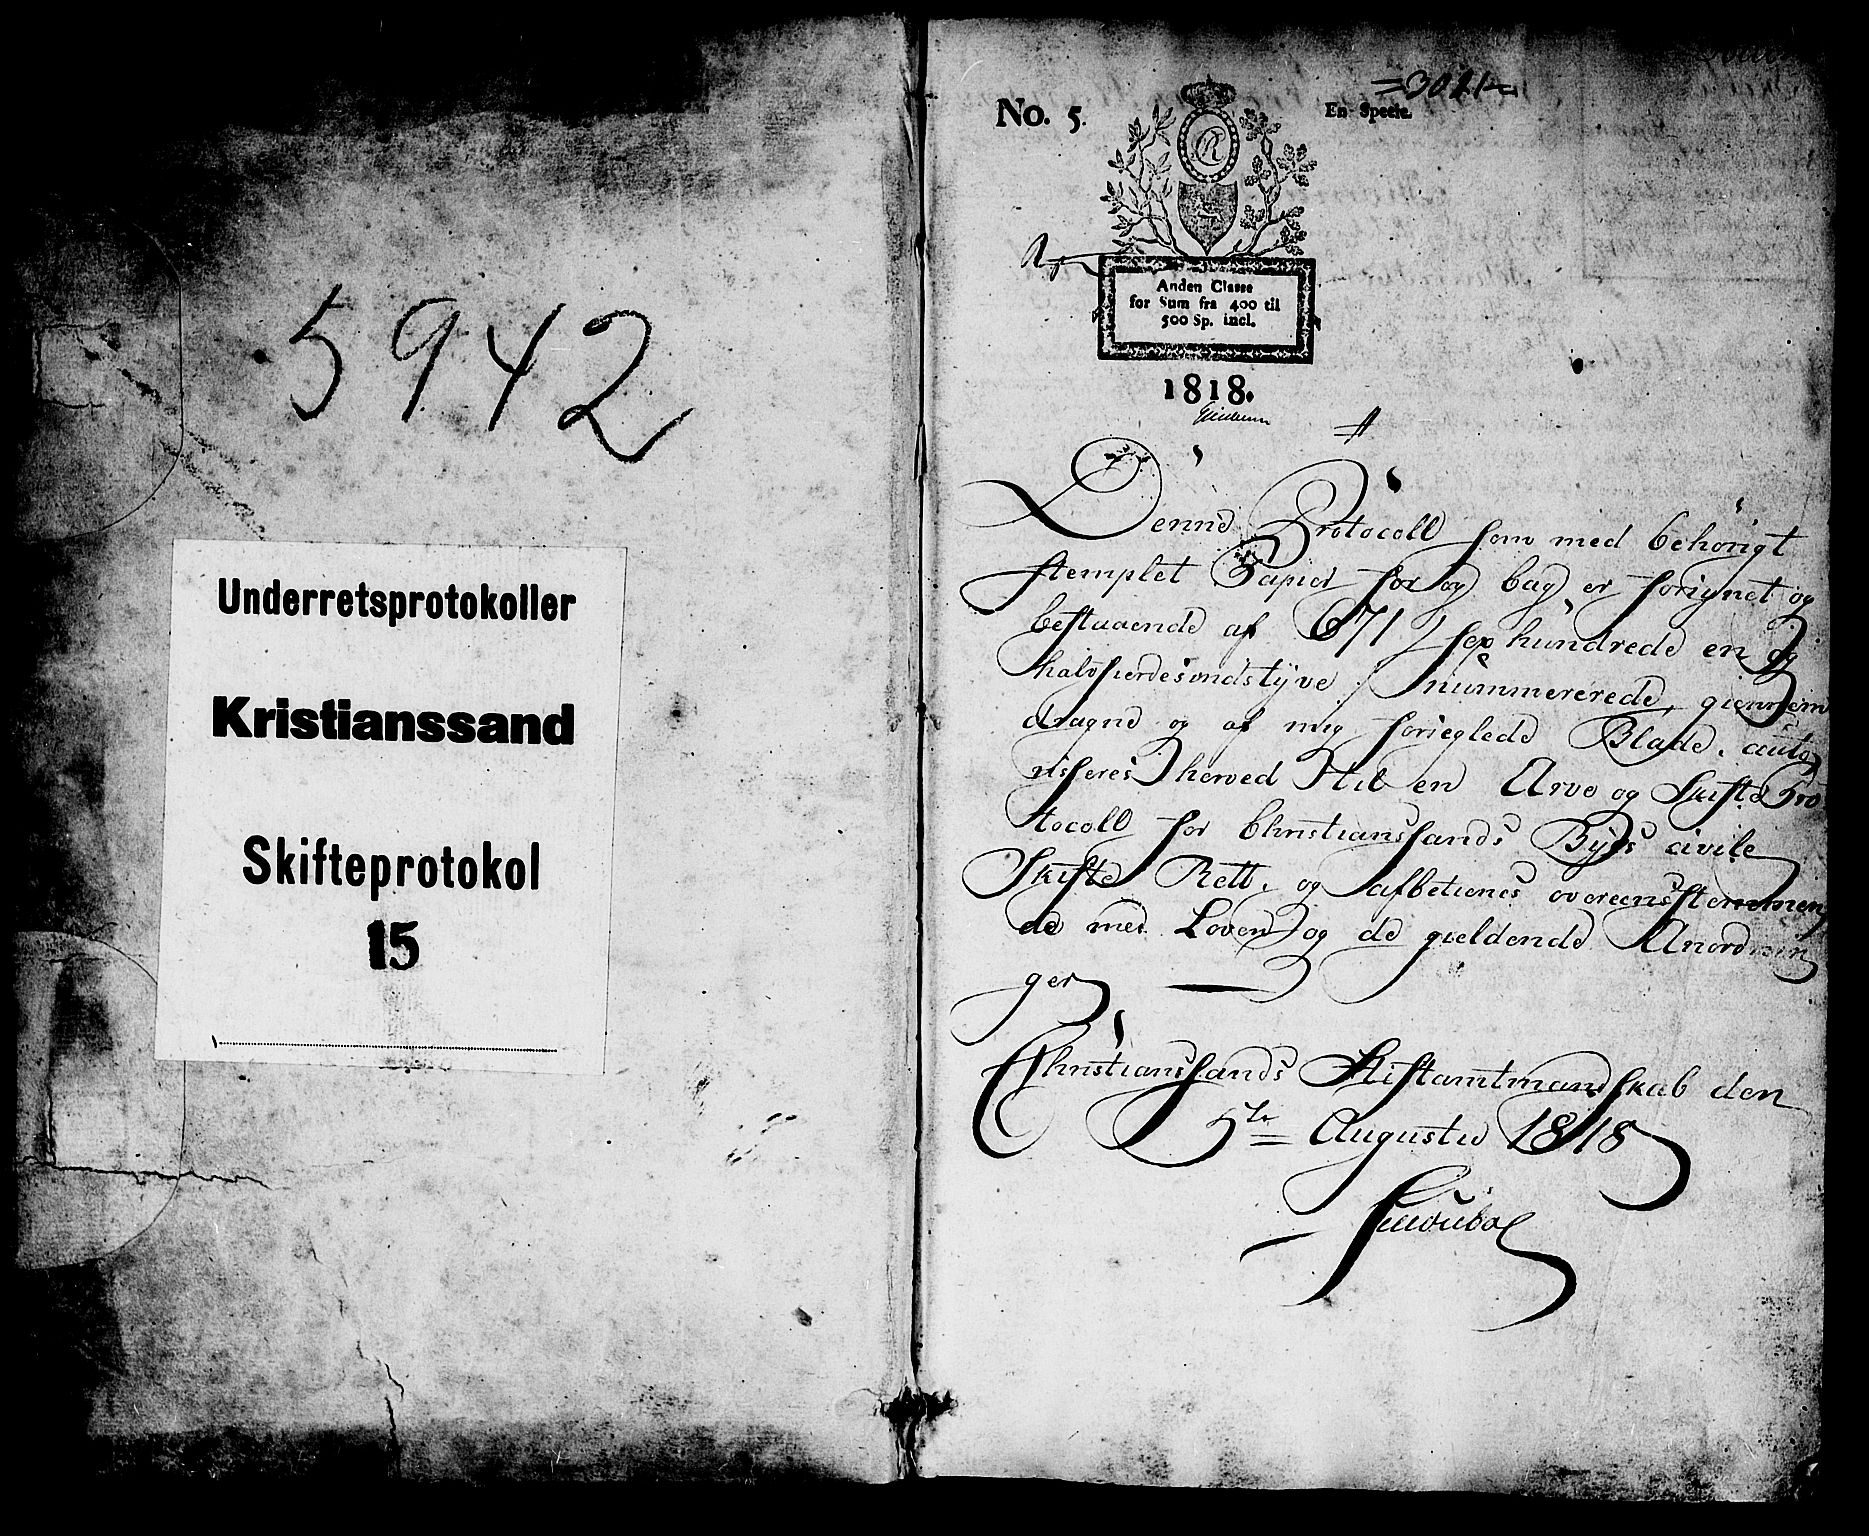 5942
Underretsprotokoller
Kristianssand
Skifteprotokol
15
=3021=
No. 5.
En Specie.
R
Anden Classe
for Sum fra 400 til
500 Sp. incl.
1818.
Denne Protocoll som med behörigt
stemplet Papiir for og bag er forsynet og
bestaaende af 671 / sex hundrede en og
halvfierdesindstÿve / nummererede, giennem
dragne og af mig forseglede Blade, auto
risseres herved til en Arve og Skifte Pro
tocoll for Christianssands Byes civile
Skifte Rett, og afbetienes overeensstemmen
de med Loven og de gieldende Anordnin
ger
Christianssands Stiftamtmandskab den
5te Augustii 1818